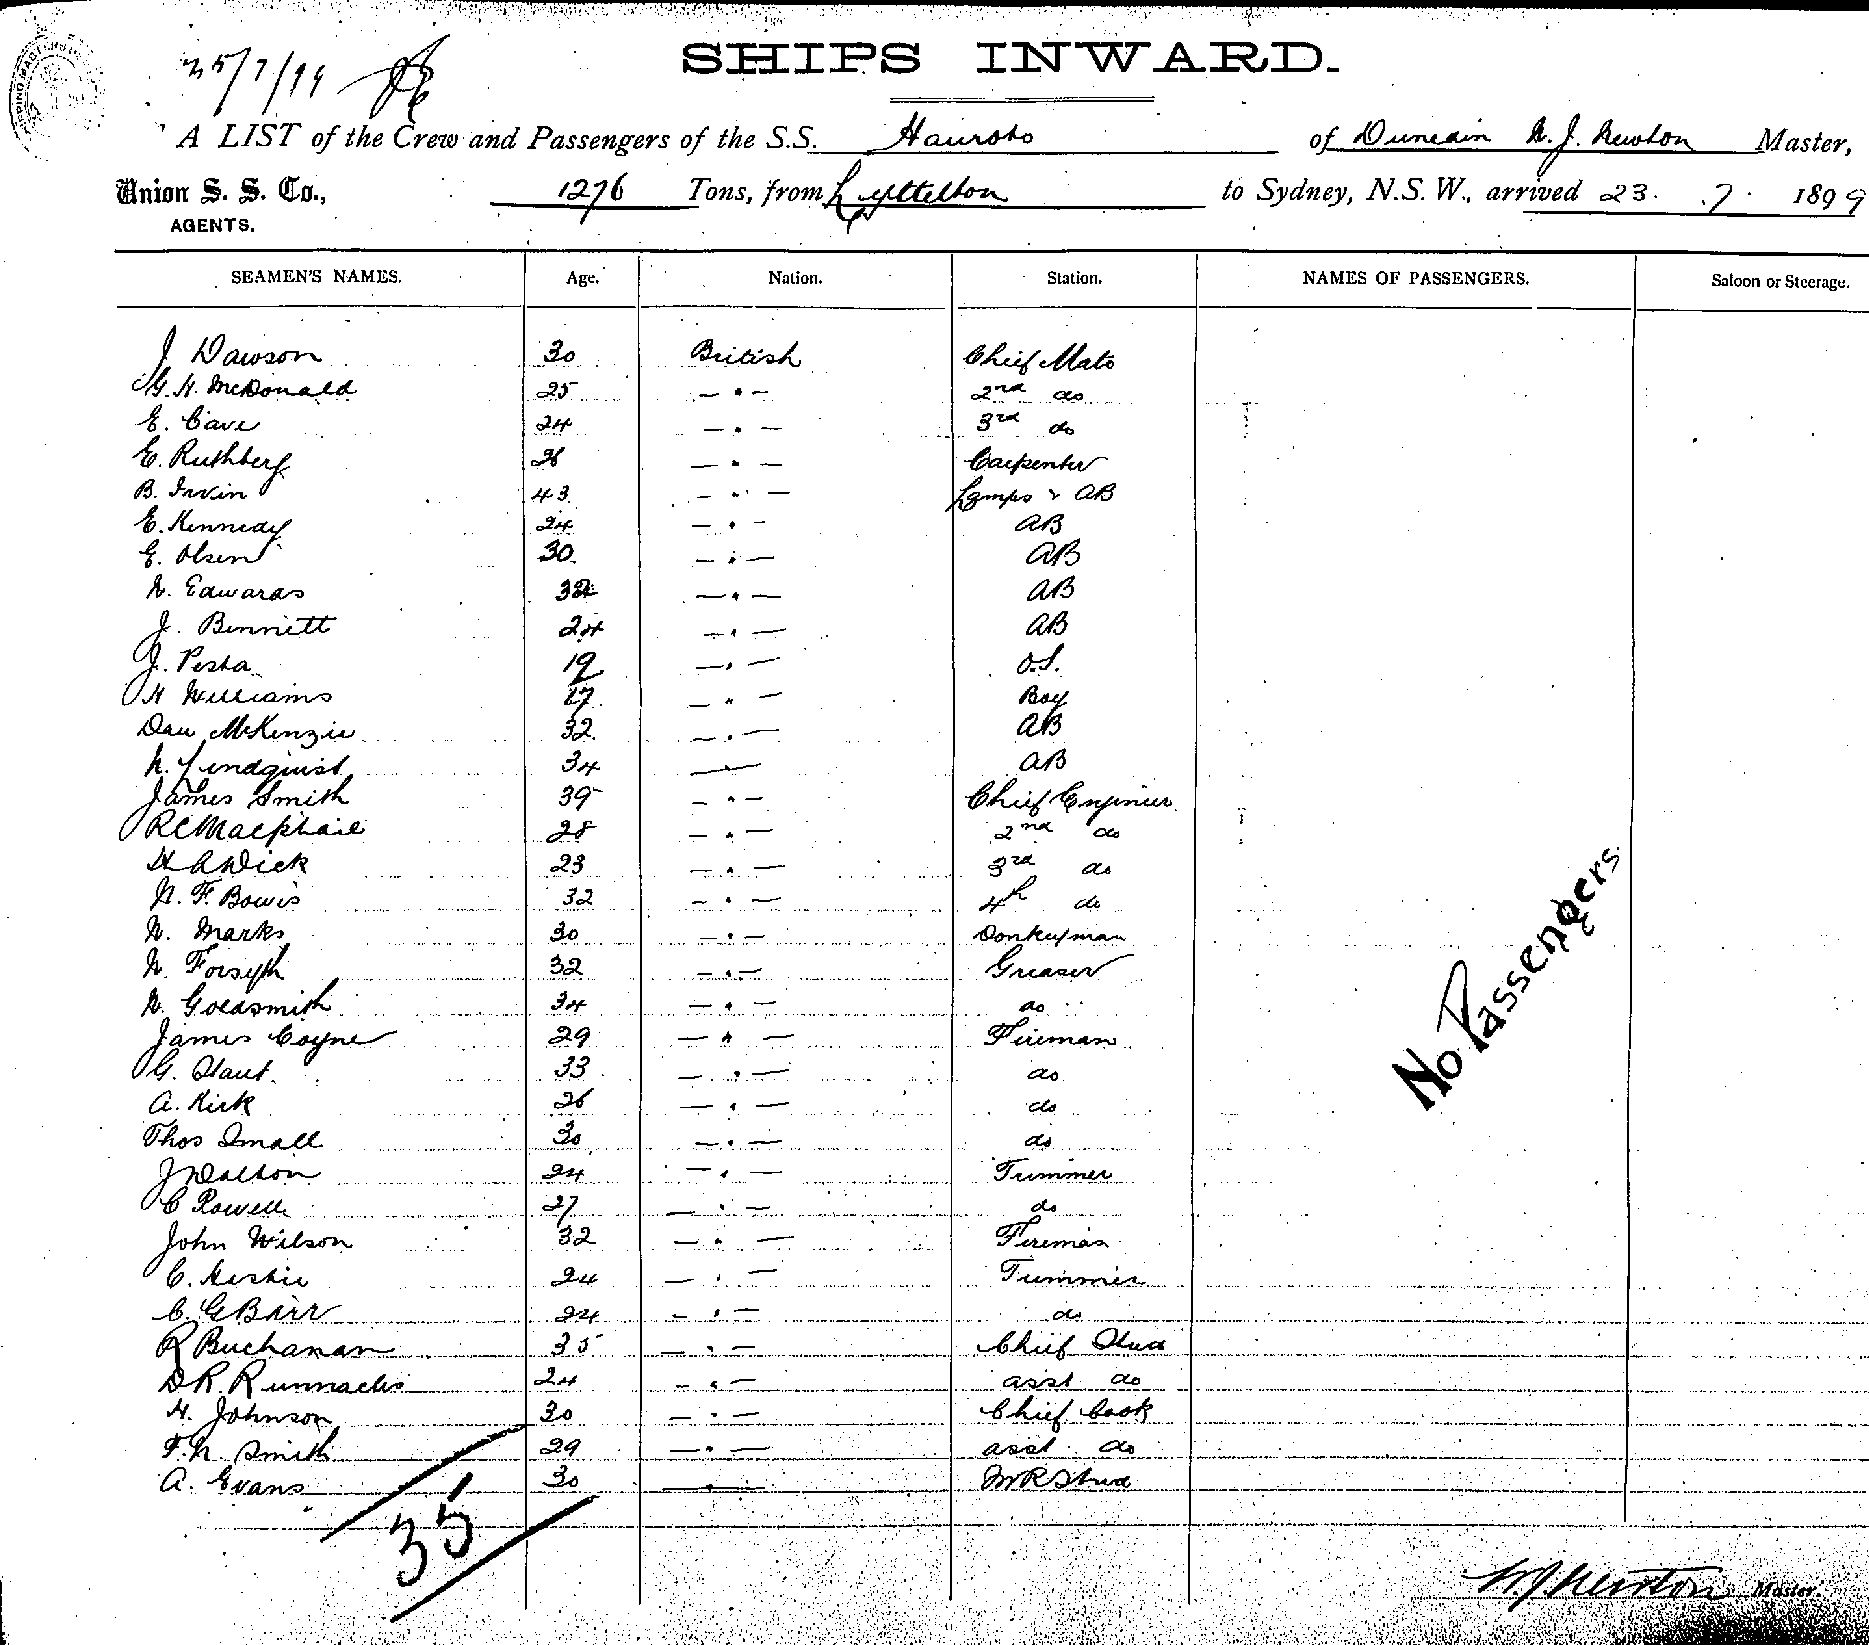 25/7/99
SHIPS INWARD.
A LIST of the Crew and Passengers of the S.S. Hauroto of Dunedin W. J. Newton Master,
Union S. S. Co., 1276 Tons, from Lyttelton to Sydney, N.S.W., arrived 23. 7. 1899
AGENTS.
SEAMEN'S NAMES. Age. Nation. Station. NAMES OF PASSENGERS. Saloon or Steerage.
J Dawson 30 British Chief Mate
G. H. McDonald 25 — " — 2nd do
E. Cave 24 — " — 3rd do
E. Ruthberg 28 — " — Carpenter
B. Irvin 43 — " — Lamps & AB
E. Kennedy 24 — " — AB
E. Olsen 30 — " — AB
W. Edwards 32 — " — AB
J. Bennett 24 — " — AB
J. Pesta 19 — " — O.S.
H Williams 17 — " — Boy
Dan McKenzie 32 — " — AB
N. Lindquist 34 — AB
James Smith 39 — " — Chief Engineer
R C Macphail 28 — " — 2nd do
H A Dick 23 — " — 3rd do
W. F. Bowis 32 — " — 4th do
W. Marks 30 — " — Donkeyman
W. Forsyth 32 — " — Greaser
W. Goldsmith 34 — " — do
James Coyne 29 — " — Fireman
G. 33 — " — do
A. Kirk 26 — " — do
Thos Small 30 — " — do
J Dalton 24 — " — Trimmer
C Powell 27 — " — do
John Wilson 32 — " — Fireman
C. 24 — " — Trimmer
C. G Barr 24 — " — do
R Buchanan 35 — " — Chief Stwd
D R 24 — " — asst do
H. Johnson 30 — " — Chief Cook
F. W. Smith 29 — " — asst do
A. Evans 30 — " — M R Stwd
No Passengers
35
W J Newton Master